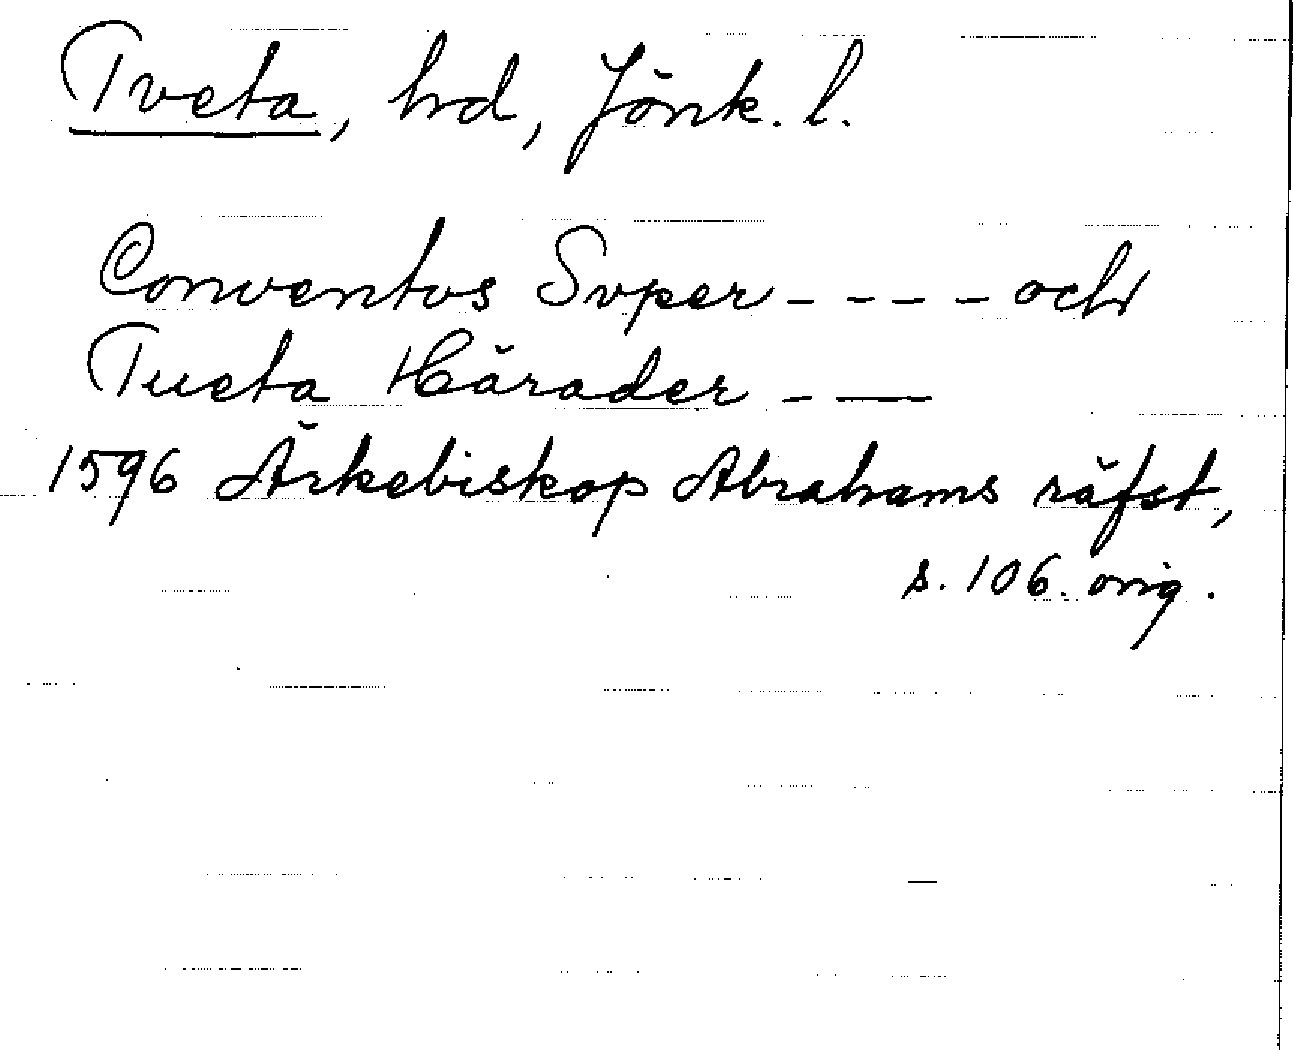 Tveta, hd, Jönk. l.
Conventvs Svper - - - - och
Tueta Härader - —
1596 Ärkebiskop Abrahams räfst,
s. 106. orig.